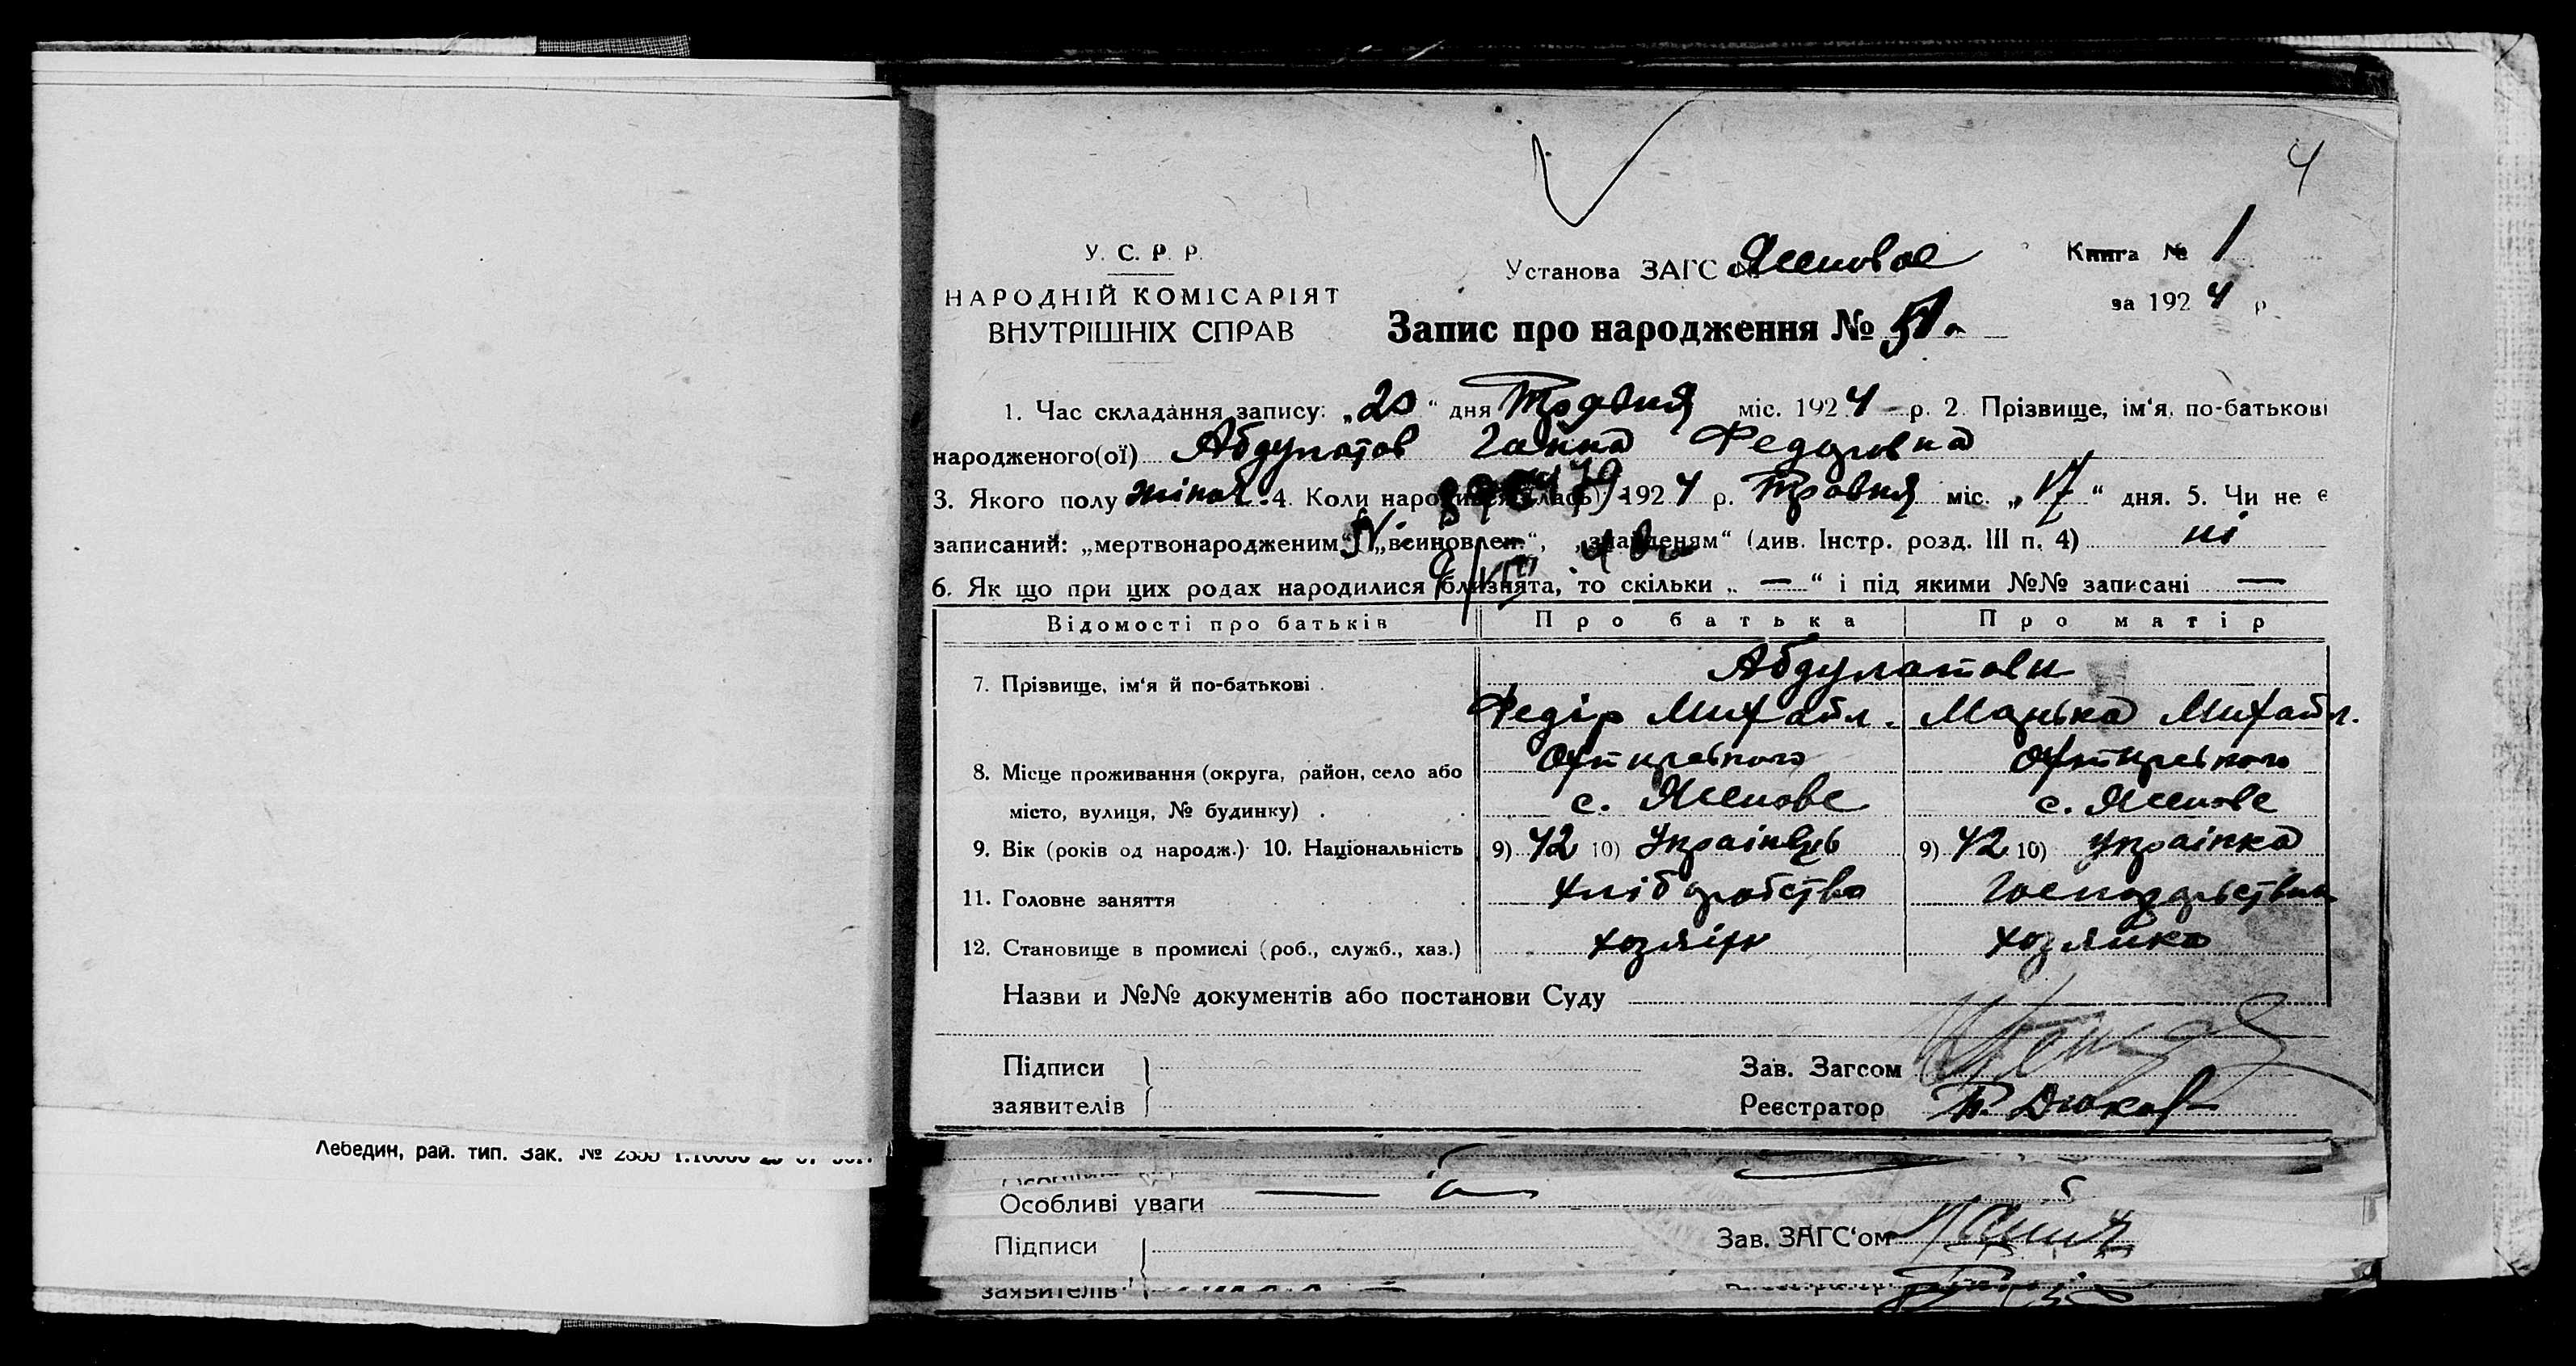 4
У. С. Р. Р.
НАРОДНІЙ КОМІСАРІЯТ
ВНУТРІШНІХ СПРАВ
Установа ЗАГС Ясеновое
Книга № 1
за 1924 р
Запис про народження № 51.
1. Час складання запису: „20“ дня Травня міс. 1924 р. 2. Прізвище, ім'я, по-батькові
народженого(ої) Абдулатов Ганна Федоровна
3. Якого полу жіноч. 4. Коли народився(лась) 1924 р. Травня міс. „17“ дня. 5. Чи не є
записаний: „мертвонародженим“, „всиновлен.“, „знайденям“ (див. Інстр. розд. III п. 4) ні
6. Як що при цих родах народилися близнята, то скільки „ — “ і під якими №№ записані —
Відомості про батьків Про батька Про матір
7. Прізвище, ім'я й по-батькові . Абдулатови
Федір Михайл. Марька Михайл.
8. Місце проживання (округа, район, село або
місто, вулиця, № будинку) . с. Ясенове с. Ясенове
9. Вік (років од народж.) 10. Національність 9) 42 10) Українець 9) 42 10) Українка
11. Головне заняття хліборобство
12. Становище в промислі (роб., служб., хаз.) хозяїн хозяйка
Назви и №№ документів або постанови Суду
Підписи
заявителів
Зав. Загсом
Реєстратор
Лебедин, рай. тип. Зак. №
Особливі уваги
Підписи
Зав. ЗАГС'ом
заявителів